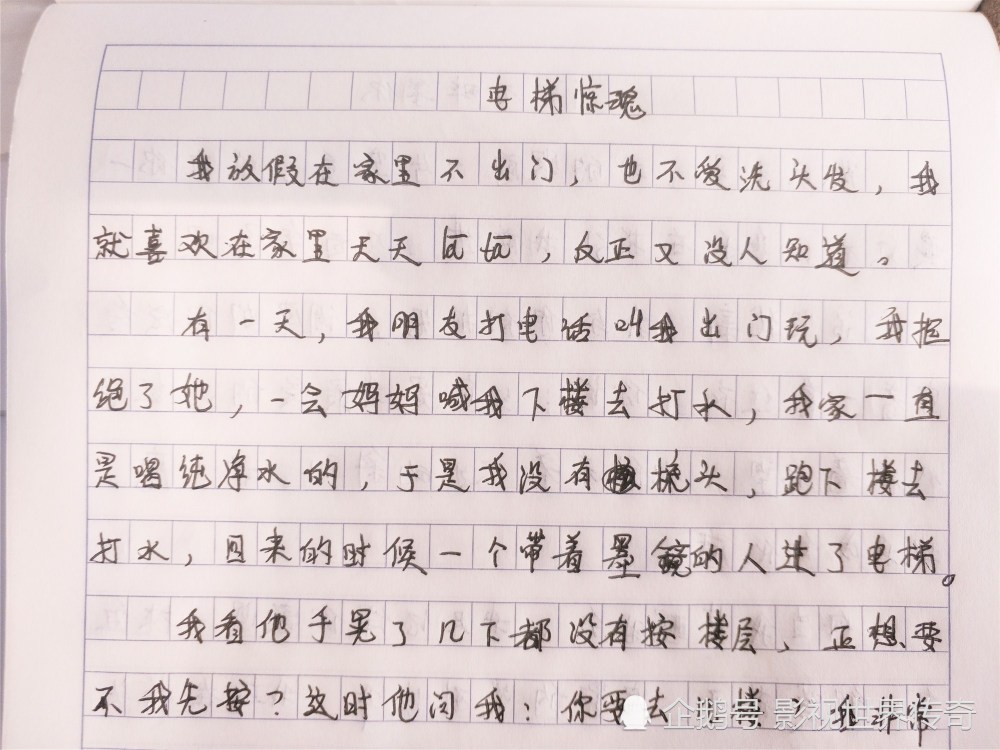 电梯惊魂
我放假在家里不出门，也不爱洗头发，我
就喜欢在家里天天坑坑，反正又没人知道。
有一天，我朋友打电话叫我出门玩，我拒
绝了她，一会妈妈喊我下楼去打水，我家一直
是喝纯净水的，于是我没有梳头，跑下楼去
打水，回来的时候一个带着墨镜的人进了电梯。
我看他手晃了几下都没有按楼层，正想要
不我先按？这时他问我：你要去 楼？我非常
企鹅号 影视世界传奇